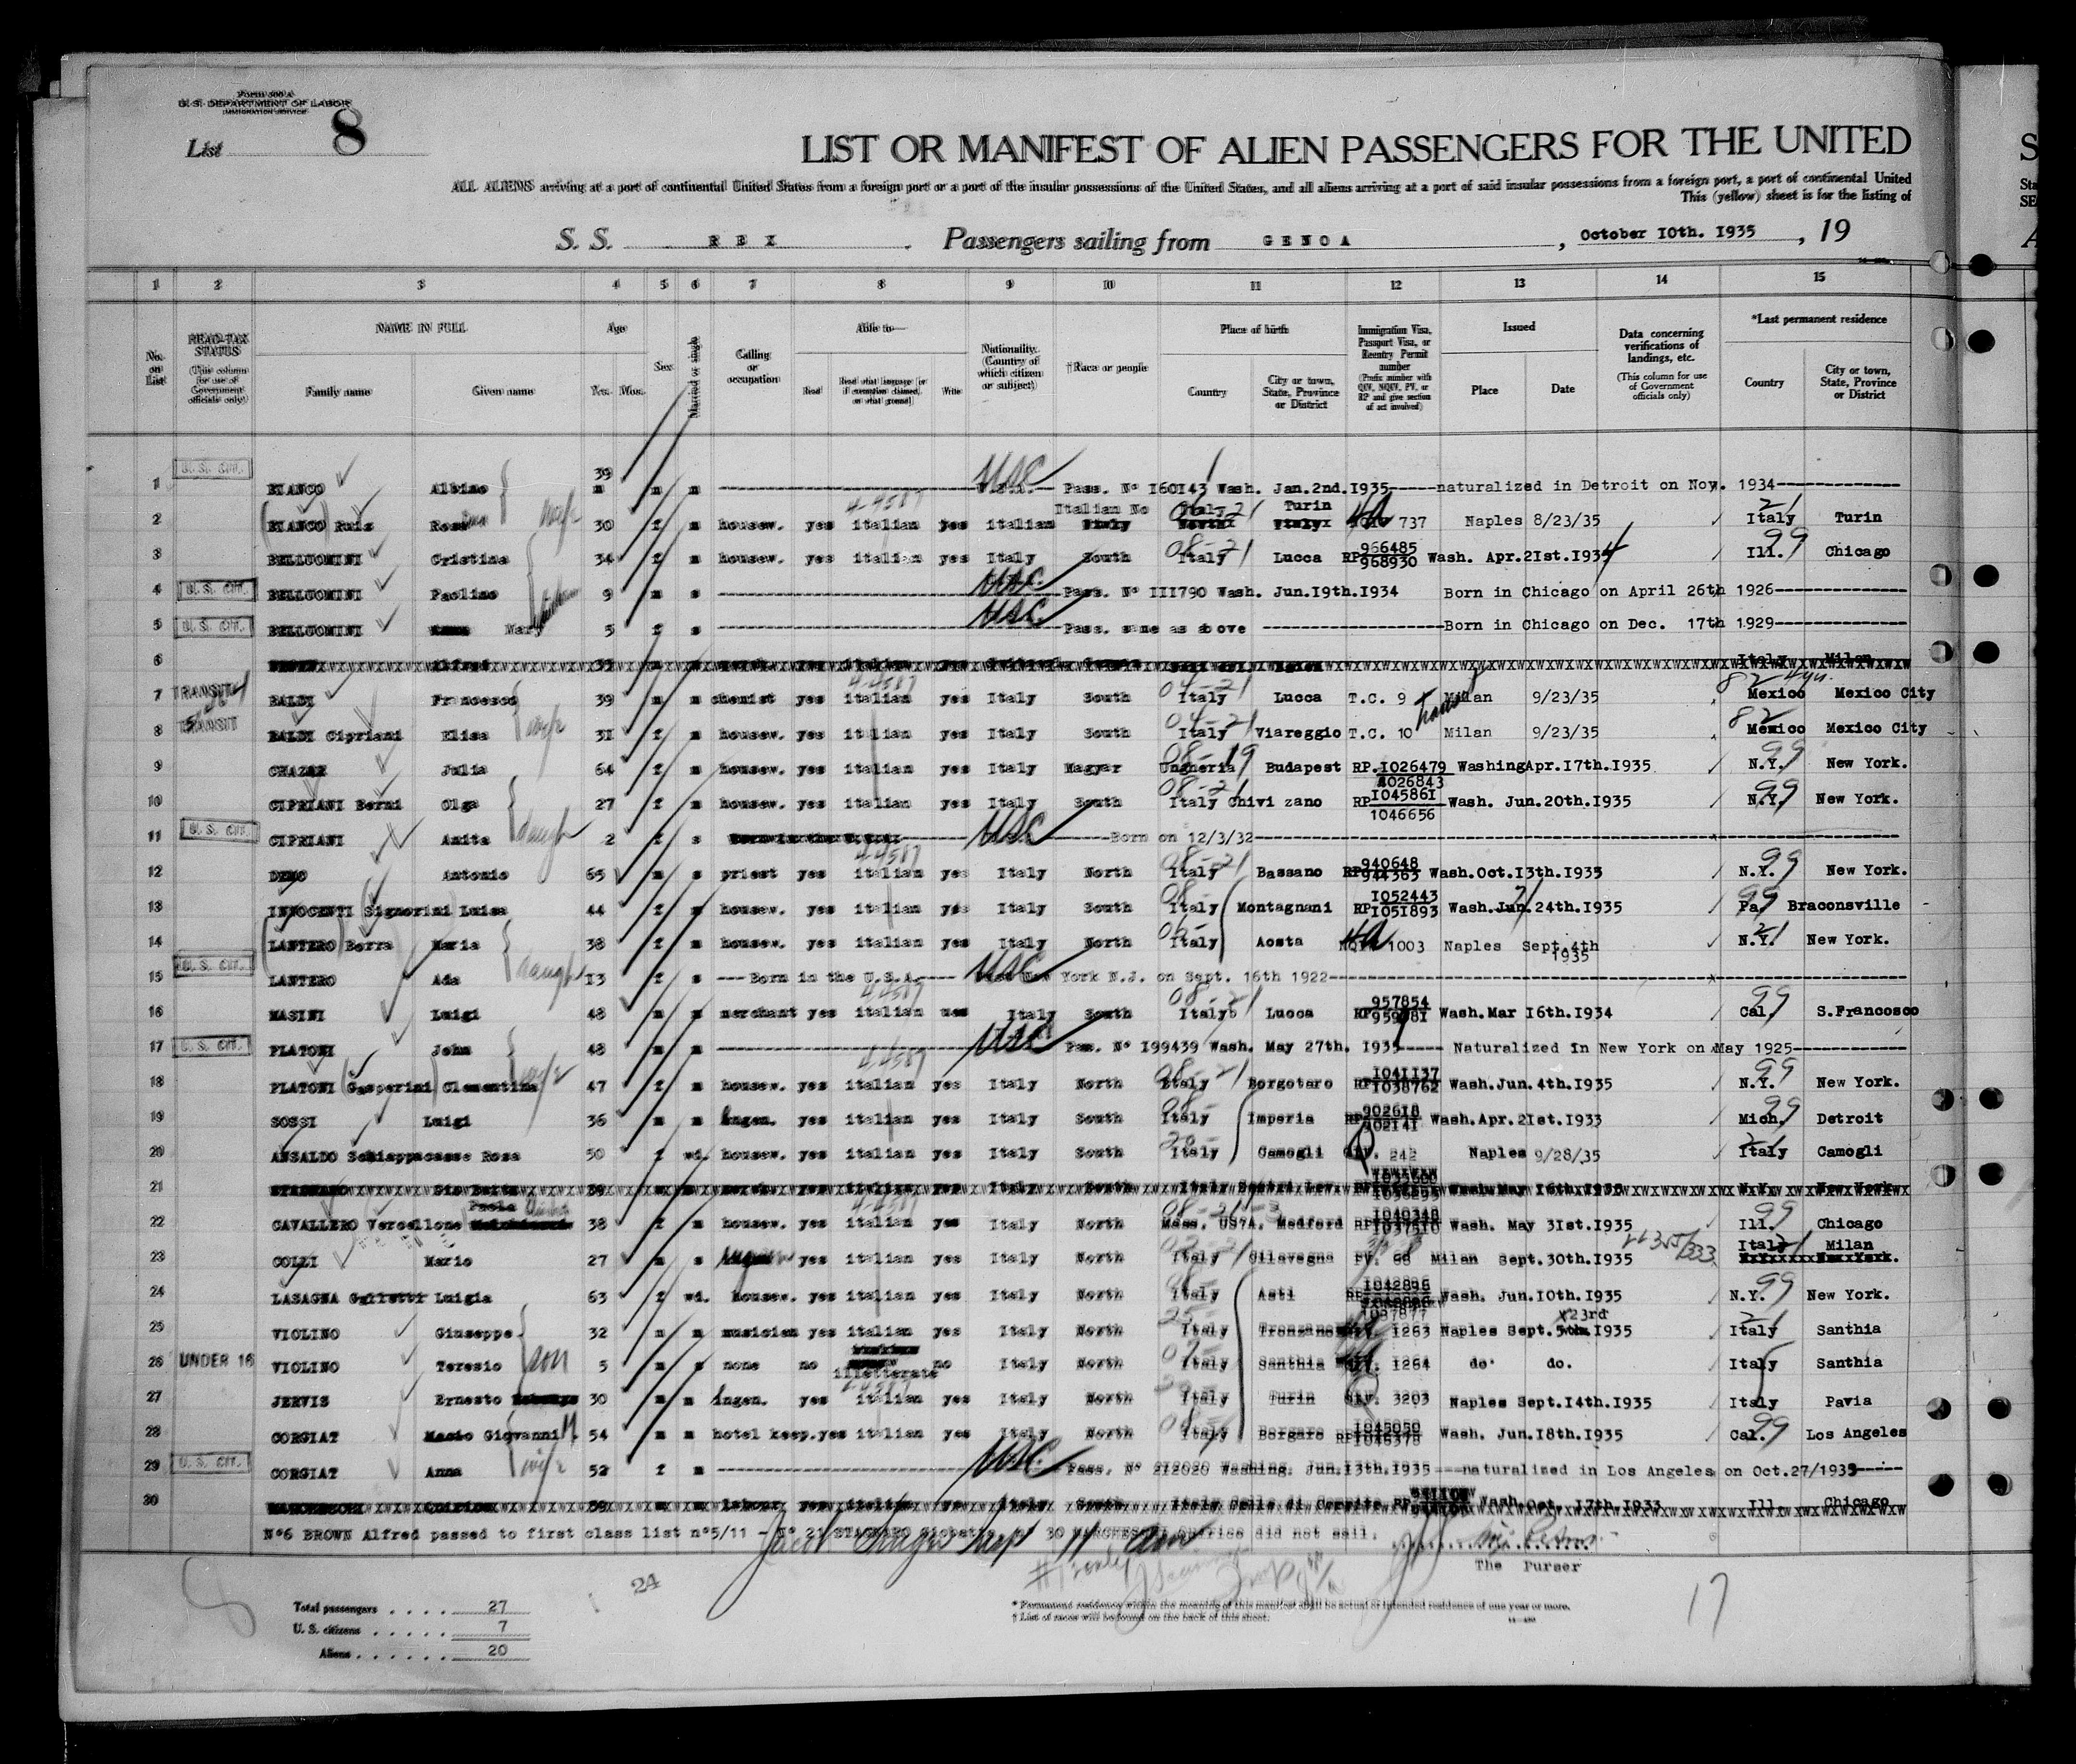 Form 500 A
U. S. DEPARTMENT OF LABOR
IMMIGRATION SERVICE
List 8
LIST OR MANIFEST OF ALIEN PASSENGERS FOR THE UNITED
ALL ALIENS arriving at a port of continental United States from a foreign port or a port of the insular possessions of the United States, and all aliens arriving at a port of said insular possessions from a foreign port, a port of continental United
This (yellow) sheet is for the listing of
S. S. REX Passengers sailing from GENOA , October 10th. 1935 , 19
1 2 3 4 5 6 7 8 9 10 11 12 13 14 15
No. on List HEAD-TAX STATUS (This column for use of Government officials only) NAME IN FULL Family name Given name Age Yrs. Mos. Sex Married or single Calling or occupation Able to— Read Read what language [or if exemption claimed, on what ground] Write Nationality. (Country of which citizen or subject) †Race or people Place of birth Country City or town, State, Province or District Immigration Visa, Passport Visa, or Reentry Permit number (Prefix number with QIV, NQIV, PV, or RP and give section of act involved) Issued Place Date Data concerning verifications of landings, etc. (This column for use of Government officials only) *Last permanent residence Country City or town, State, Province or District
1 U. S. CIT. BIANCO Albino 39 m m USC Pass. N° 160143 Wash. Jan.2nd.1935-----naturalized in Detroit on Nov. 1934
2 BIANCO Ruiz Rosa wife 30 f m housew. yes italian yes italian Italian No Italy Turin 737 Naples 8/23/35 Italy Turin
3 BELLUOMINI Cristina 34 f m housew. yes italian yes Italy South Italy Lucca RP 966485 968930 Wash. Apr.21st.1934 Ill. Chicago
4 U. S. CIT. BELLUOMINI Paolino 9 m s USC Pass. N° III790 Wash. Jun.19th.1934 Born in Chicago on April 26th 1926
5 U. S. CIT. BELLUOMINI Mary 5 f s USC Pass. same as above Born in Chicago on Dec. 17th 1929
6 Alfred Italy Milan
7 TRANSIT BALDI Francesco 39 m m chemist yes italian yes Italy South Italy Lucca T.C. 9 Milan 9/23/35 Mexico Mexico City
8 TRANSIT BALDI Cipriani Elisa wife 31 f m housew. yes italian yes Italy South Italy Viareggio T.C. 10 Milan 9/23/35 Mexico Mexico City
9 Julia 64 f m housew. yes italian yes Italy Magyar Ungheria Budapest RP.1026479 Washing Apr.17th.1935 N.Y. New York.
10 CIPRIANI Berni Olga 27 f m housew. yes italian yes Italy South Italy Chivi zano RP 1045861 1046656 Wash. Jun.20th.1935 N.Y. New York.
11 U. S. CIT. CIPRIANI Anita daugh 2 f s USC Born on 12/3/32
12 DEMO Antonio 65 m s priest yes italian yes Italy North Italy Bassano RP 940648 Wash.Oct.13th.1935 N.Y. New York.
13 INNOCENTI Signorini Luisa 44 f m housew. yes italian yes Italy South Italy Montagnani RP 1052443 1051893 Wash.Jun.24th.1935 Pa. Braconsville
14 LANTERO Borra Maria 38 f m housew. yes italian yes Italy North Italy Aosta 1003 Naples Sept.4th 1935 N.Y. New York.
15 U. S. CIT. LANTERO Ada daugh 13 f s ---Born in the U.S.A.---- USC York N.J. on Sept. 16th 1922
16 MASINI Luigi 48 m m merchant yes italian Italy South Italy Lucca RP 957854 Wash.Mar 16th.1934 Cal. S.Francosco
17 U. S. CIT. PLATONI John 48 m m USC Pass. N° 199439 Wash. May 27th. 1935----- Naturalized in New York on May 1925
18 PLATONI Gasperini Clementina wife 47 f m housew. yes italian yes Italy North Italy Borgotaro RP 1041137 1038762 Wash.Jun.4th.1935 N.Y. New York.
19 SOSSI Luigi 36 m m ingen. yes italian yes Italy South Italy Imperia RP 902618 902141 Wash.Apr.21st.1933 Mich. Detroit
20 ANSALDO Schiappacasse Rosa 50 f wd. housew. yes italian yes Italy South Italy Camogli 242 Naples 9/28/35 Italy Camogli
21 Wash. May 16th.1935 N.Y. New York
22 CAVALLERO Vercellone Paola 38 f m housew. yes italian yes Italy North Mass. USA. Medford RP 1040348 1037510 Wash. May 31st.1935 Ill. Chicago
23 COLLI Mario 27 m s yes italian yes Italy North Italy Cilavegna PV. 68 Milan Sept.30th.1935 Italy Milan
24 LASAGNA Luigia 63 f wd. housew. yes italian yes Italy North Italy Asti RP 1042896 Wash. Jun.10th.1935 N.Y. New York.
25 VIOLINO Giuseppe 32 m m musician yes italian yes Italy North Italy Tronzano 1263 Naples Sept. 23rd 1935 Italy Santhia
26 UNDER 16 VIOLINO Teresio son 5 m s none no illetterate no Italy North Italy Santhia 1264 do. do. Italy Santhia
27 JERVIS Ernesto 30 m m ingen. yes italian yes Italy North Italy Turin 3203 Naples Sept.14th.1935 Italy Pavia
28 CORGIAT Giovanni M. 54 m m hotel keep. yes italian yes Italy North Italy Borgaro RP 1045050 1045378 Wash. Jun.18th.1935 Cal. Los Angeles
29 U. S. CIT. CORGIAT Anna wife 52 f m USC Pass. N° 212020 Washing. Jun.13th.1935 ---naturalized in Los Angeles on Oct.27/1933
30 MARCHESCHI Quirino 59 m m labour yes italian yes Italy South Italy Wash.Oct. 17th.1933 Ill. Chicago
N°6 BROWN Alfred passed to first class list n°5/11 - N° 21 STAGNARO Giobatta, n° 30 MARCHESCHI Quirino did not sail.
The Purser
24
Total passengers . . . . 27
U. S. citizens . . . . . 7
Aliens . . . . . 20
* Permanent residence within the meaning of this manifest shall be actual or intended residence of one year or more.
† List of races will be found on the back of this sheet.
17